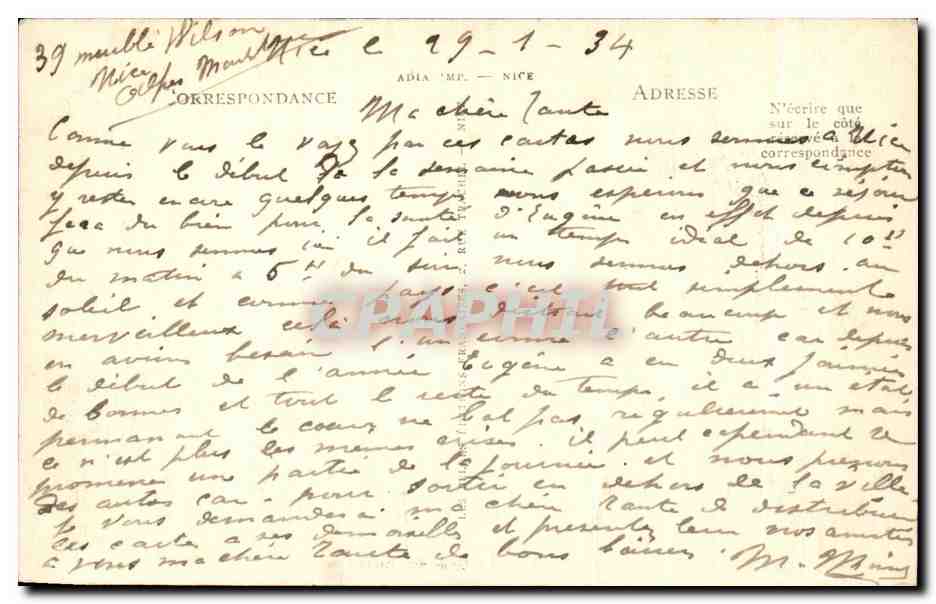 39 meublé Wilson
Nice
Alpes
Nice le 29-1-34
ADIA IMP. — NICE
CORRESPONDANCE
ADRESSE
N'écrire que
sur le côté
réservé à la
correspondance
Ma chère Tante
Comme vous le voyez par ces cartes nous sommes à Nice
depuis le début de la semaine passée et nous comptons
y rester encore quelques temps nous esperons que ce séjour
fera du bien pour la santé d'Eugène en effet depuis
que nous sommes ici il fait un temps idéal de 10 hs
du matin a 5 hs du soir nous sommes dehors au
soleil et comme pays c'est tout simplement
merveilleux cela nous distrait beaucoup et nous
en avions besoin l'un comme l'autre car depuis
le début de l'année Eugène a eu deux journées
de bonnes et tout le reste du temps il a un état
permanant le coeur ne bat pas regulierement mais
ce n'est plus les memes crises. il peut cependant se
promener une partie de la journée et nous prenons
des autos car pour sortir en dehors de la ville
je vous demanderai ma chère Tante de distribuer
ces cartes a ses demoiselles et presentez leur nos amitiés
a vous ma chère Tante de bons baisers
CPAPHIL